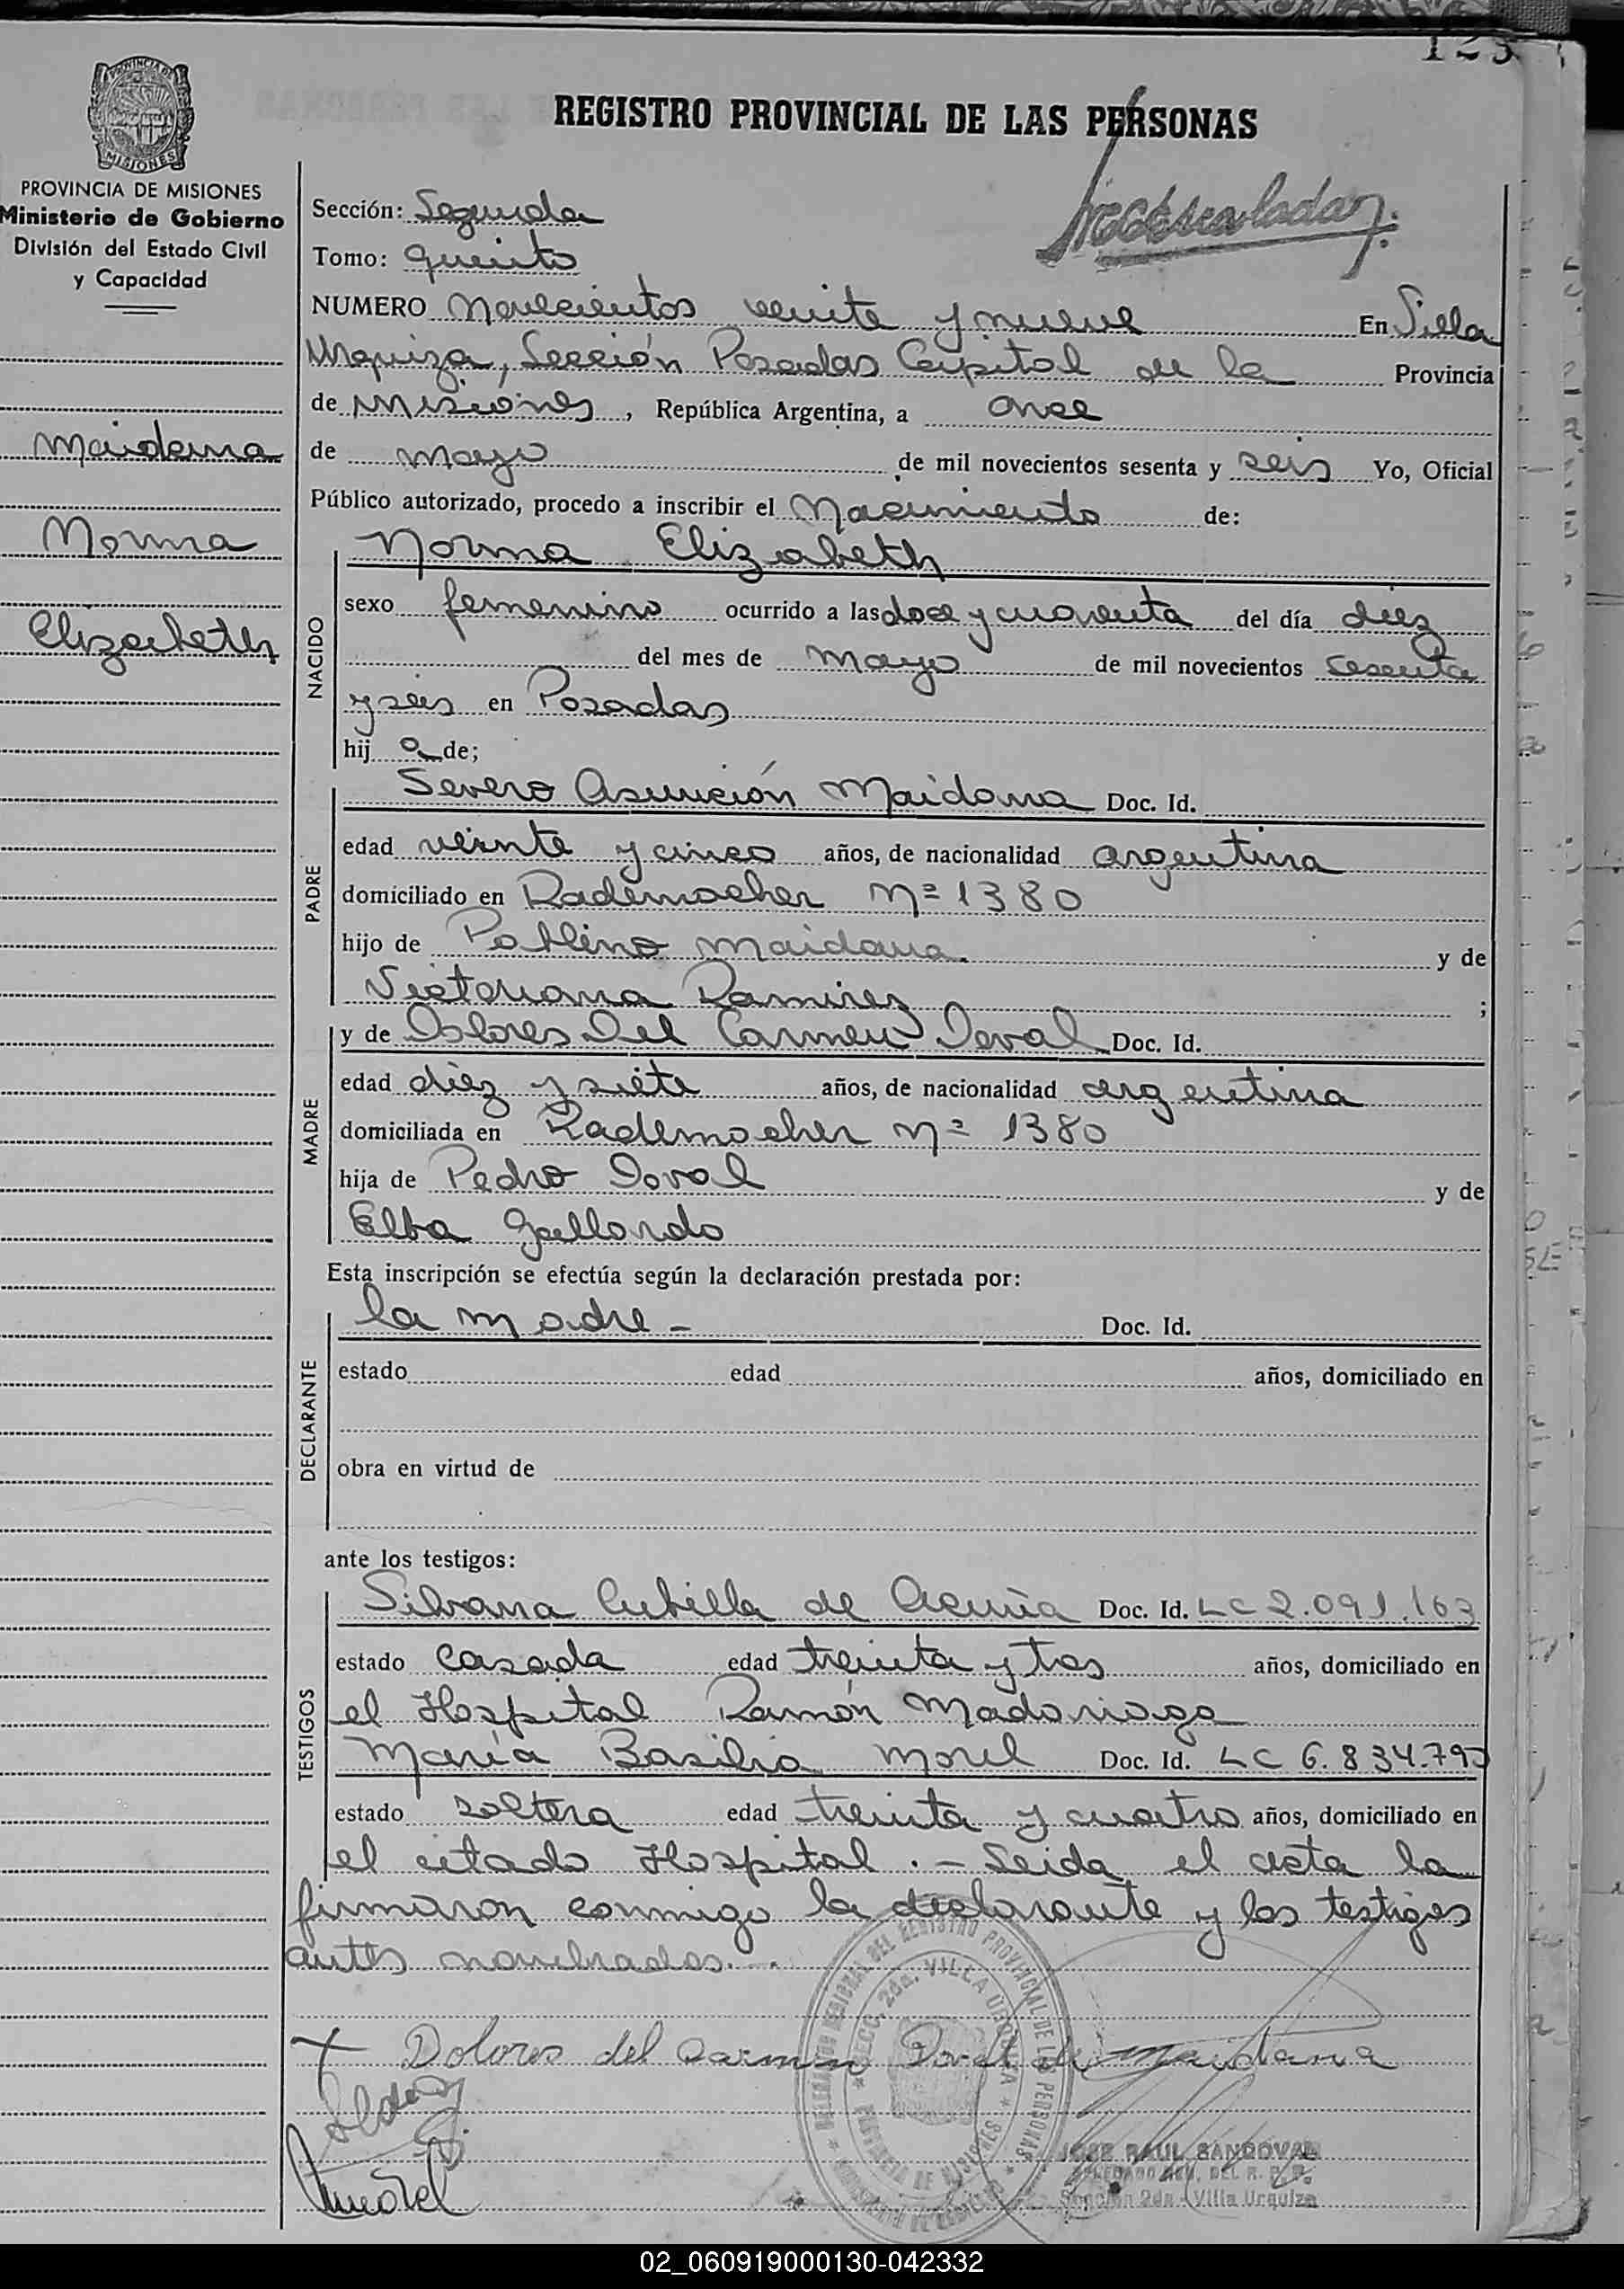 123
PROVINCIA DE MISIONES
Ministerio de Gobierno
División del Estado Civil
y Capacidad
Maidana
Norma
Elizabeth
REGISTRO PROVINCIAL DE LAS PERSONAS
Sección: Segunda
Tomo: quinto
NUMERO Novecientos veinte y nueve En Villa
Urquiza, Sección Posadas Capital de la Provincia
de Misiones, República Argentina, a once
de mayo de mil novecientos sesenta y seis Yo, Oficial
Público autorizado, procedo a inscribir el Nacimiento de:
NACIDO
Norma Elizabeth
sexo femenino ocurrido a las doce y cuarenta del día diez
del mes de mayo de mil novecientos sesenta
y seis en Posadas
hij a de;
PADRE
Severo Asunción Maidana Doc. Id.
edad veinte y cinco años, de nacionalidad argentina
domiciliado en Rademacher Nº 1380
hijo de Maidana y de
Victoriana Ramirez ;
MADRE
y de Dolores Del Carmen Doval Doc. Id.
edad diez y siete años, de nacionalidad argentina
domiciliada en Rademacher Nº 1380
hija de Pedro Doval y de
Elba Gallardo
Esta inscripción se efectúa según la declaración prestada por:
DECLARANTE
la madre - Doc. Id.
estado edad años, domiciliado en
obra en virtud de
ante los testigos:
TESTIGOS
Silvana Cubilla de Acuña Doc. Id. LC 2.091.163
estado casada edad treinta y tres años, domiciliado en
el Hospital Ramón Madariaga
María Basilia Morel Doc. Id. LC 6.834.795
estado soltera edad treinta y cuatro años, domiciliado en
el citado Hospital. - Leida el acta la
firmaron conmigo la declarante y los testigos
antes nombrados. -
Dolores del Carmen Doval de Maidana
JOSE RAUL SANDOVAL
DELEGADO REG. DEL R. P. P.
Sección 2da. Villa Urquiza
02_060919000130-042332